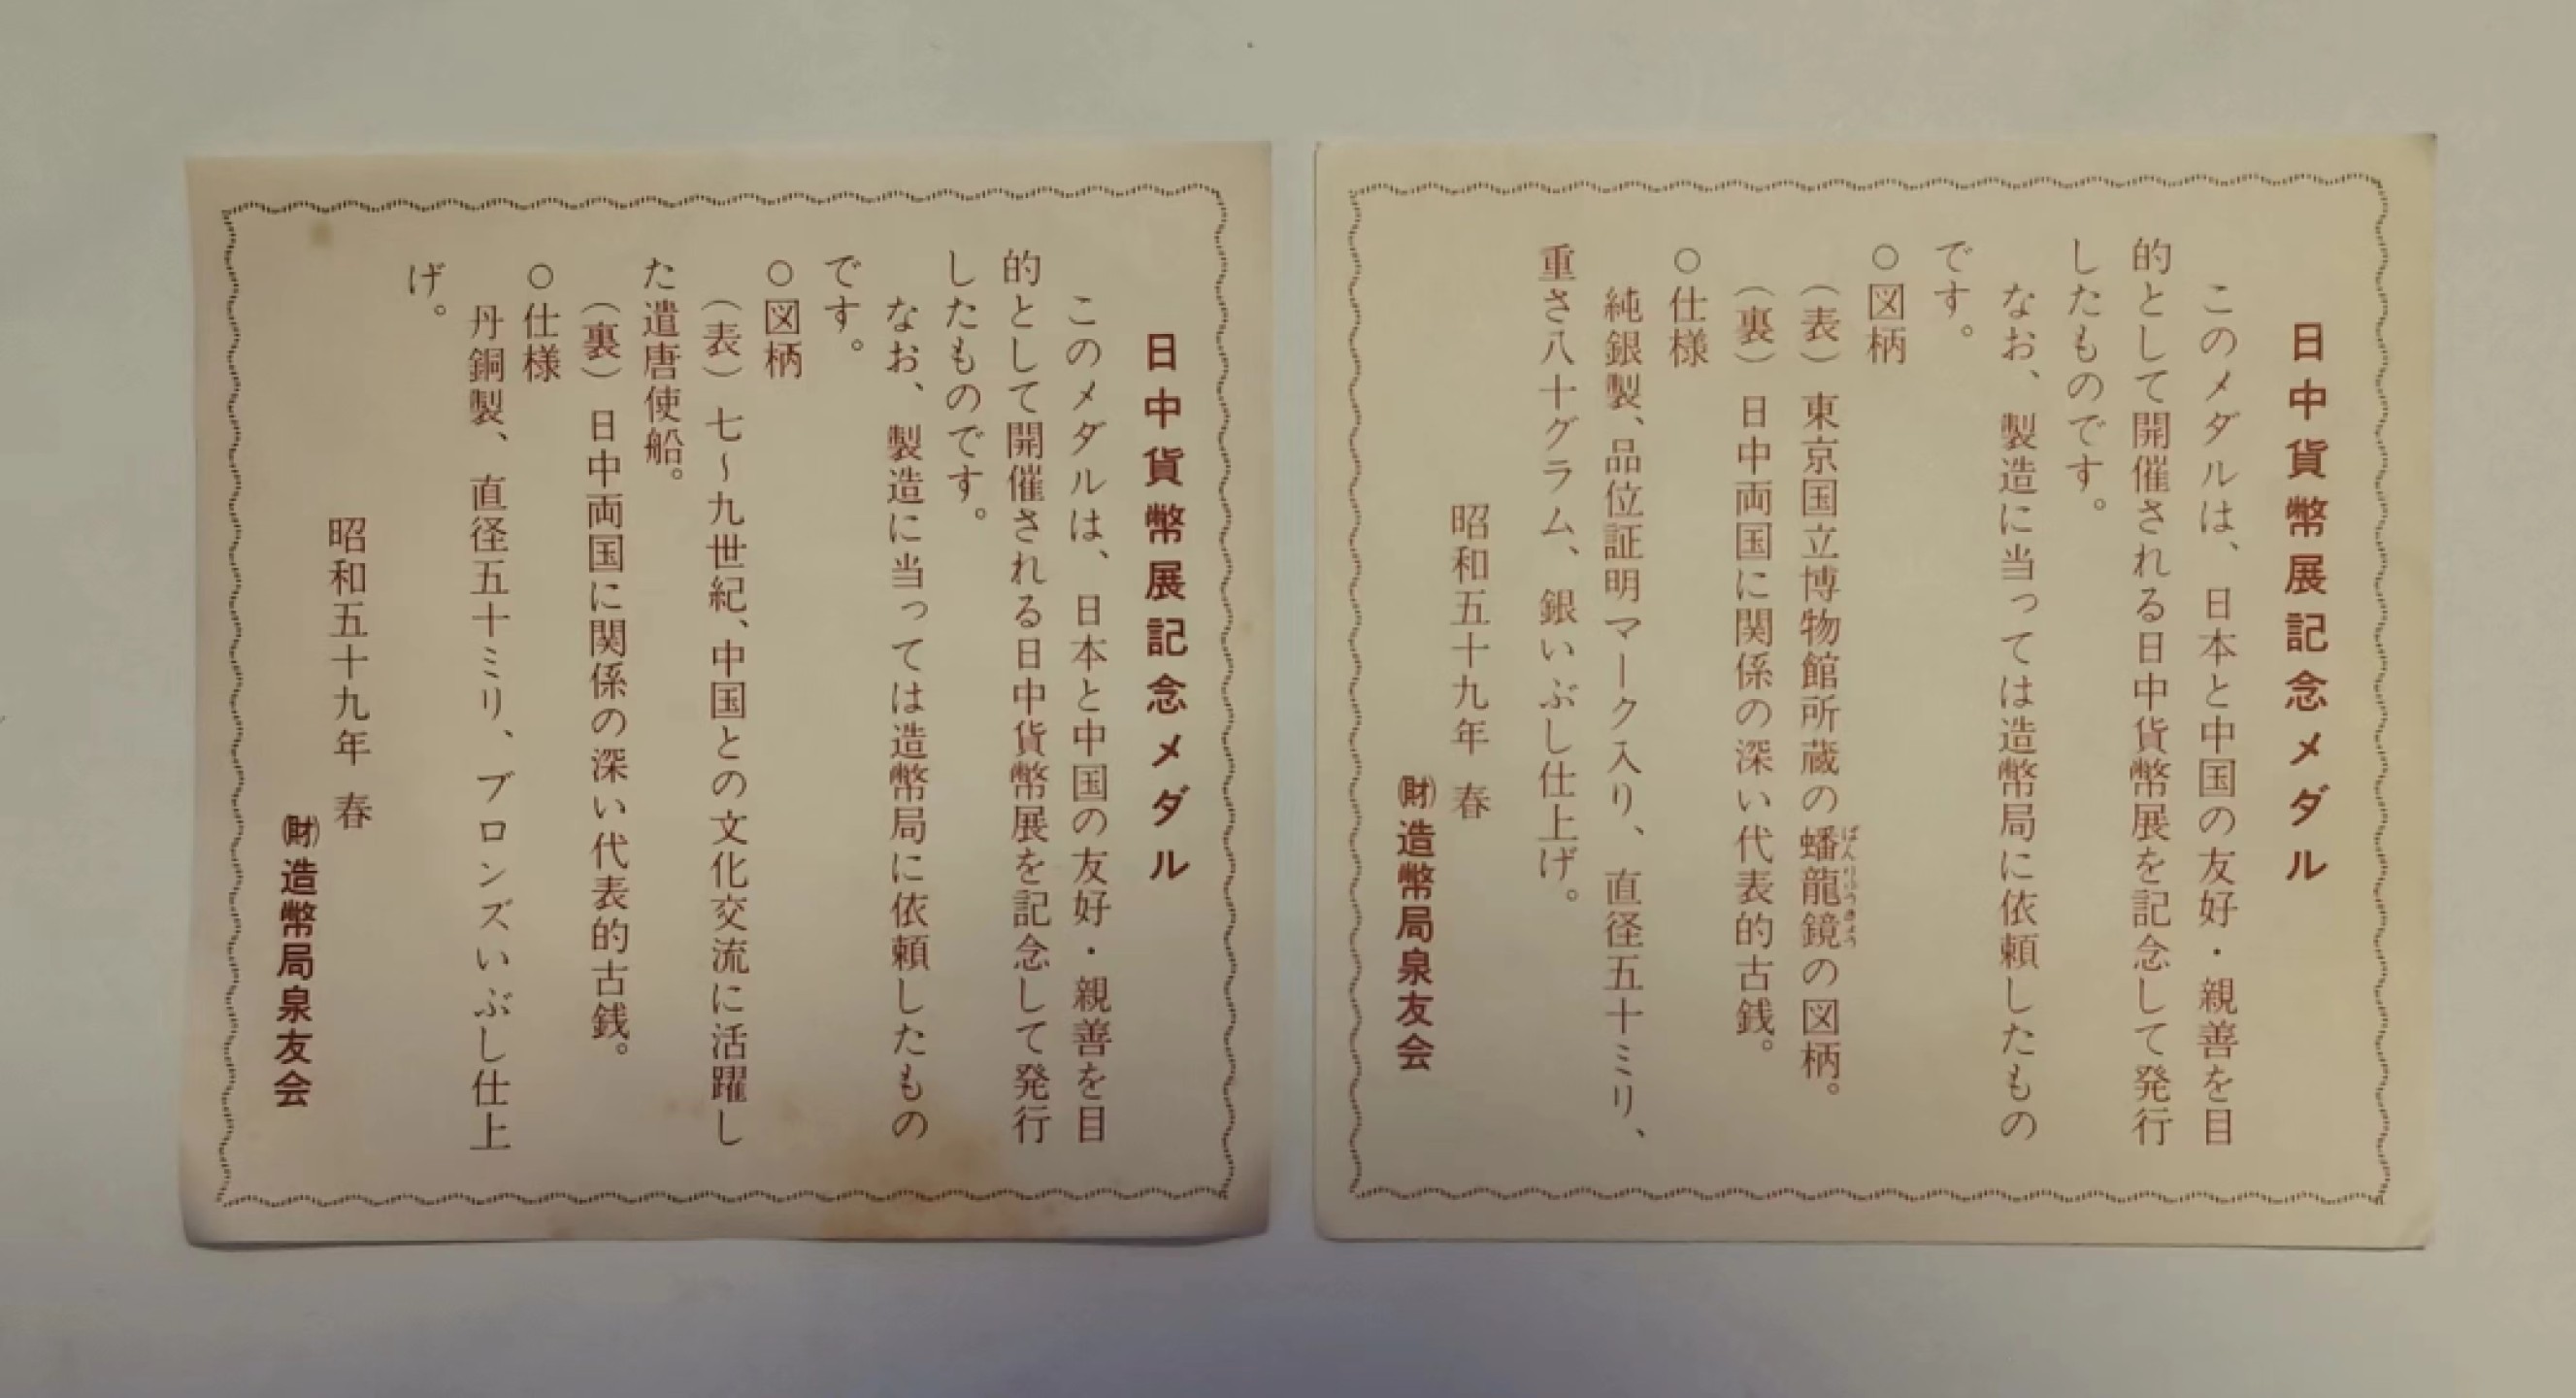 日中貨幣展記念メダル
このメダルは、日本と中国の友好・親善を目
的として開催される日中貨幣展を記念して発行
したものです。
なお、製造に当っては造幣局に依頼したもの
です。
○図柄
（表）東京国立博物館所蔵の蟠龍鏡の図柄。
ばんりゅうきょう
（裏）日中両国に関係の深い代表的古銭。
○仕様
純銀製、品位証明マーク入り、直径五十ミリ、
重さ八十グラム、銀いぶし仕上げ。
昭和五十九年 春
㈶造幣局泉友会
日中貨幣展記念メダル
このメダルは、日本と中国の友好・親善を目
的として開催される日中貨幣展を記念して発行
したものです。
なお、製造に当っては造幣局に依頼したもの
です。
○図柄
（表）七〜九世紀、中国との文化交流に活躍し
た遣唐使船。
（裏）日中両国に関係の深い代表的古銭。
○仕様
丹銅製、直径五十ミリ、ブロンズいぶし仕上
げ。
昭和五十九年 春
㈶造幣局泉友会